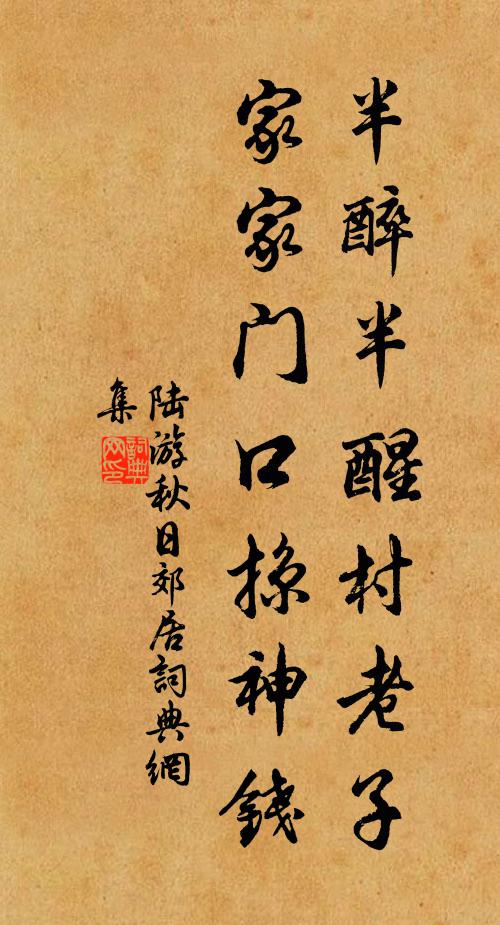 半醉半醒村老子
家家门口掠神錢
陆游秋日郊居詞典網
集
詞典网印